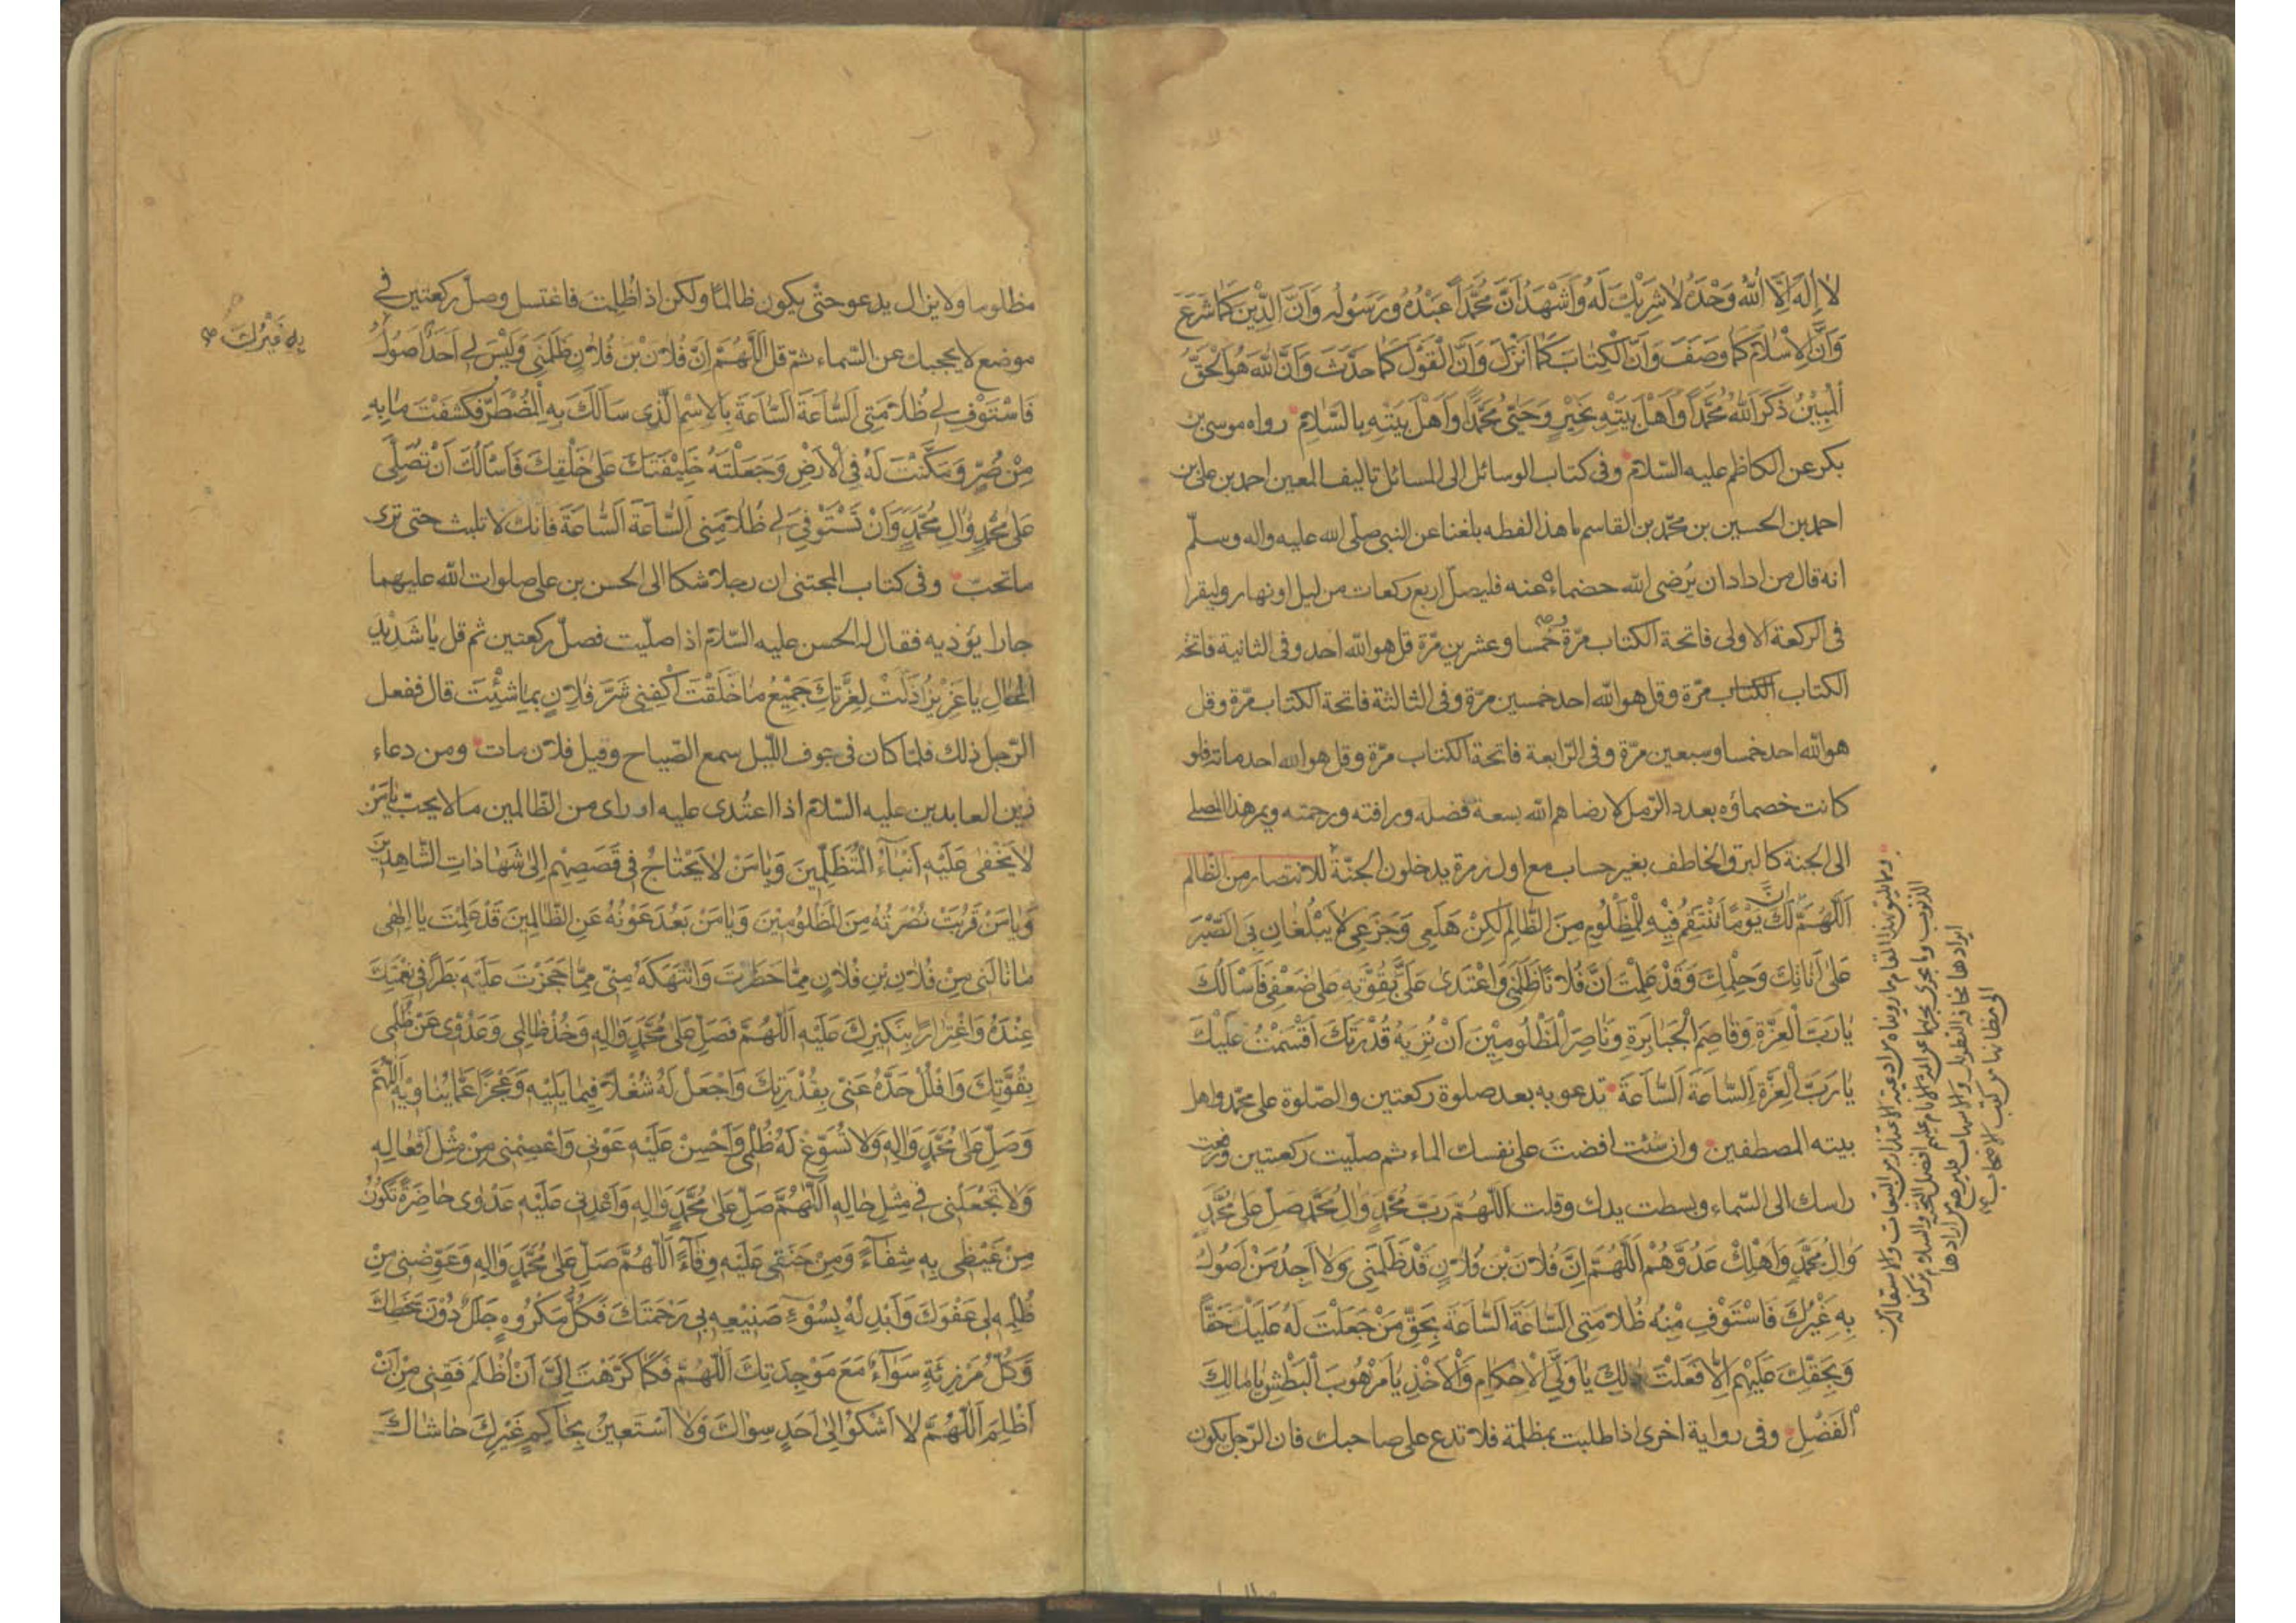 لَا إِلَهَ إِلَّا اللَّهُ وَحْدَهُ لَا شَرِيكَ لَهُ وَأَشْهَدُ أَنَّ مُحَمَّداً عَبْدُهُ وَرَسُولُهُ وَأَنَّ الدِّينَ كَمَا شَرَعَ
وَأَنَّ الْإِسْلَامَ كَمَا وَصَفَ وَأَنَّ الْكِتَابَ كَمَا أَنْزَلَ وَأَنَّ الْقَوْلَ كَمَا حَدَّثَ وَأَنَّ اللَّهَ هُوَ الْحَقُّ
الْمُبِينُ ذَكَرَ اللَّهُ مُحَمَّداً وَأَهْلَ بَيْتِهِ بِخَيْرٍ وَحَيَّى مُحَمَّداً وَأَهْلَ بَيْتِهِ بِالسَّلَامِ رواه موسى بن
بكر عن الكاظم عليه السّلام وفى كتاب الوسائل الى المسائل تاليف المعين احمد بن على بن
احمد بن الحسين بن محمّد بن القاسم ما هذا لفظه بلغنا عن النبى صلّى الله عليه واله وسلّم
انه قال من اراد ان يُرضى الله خصماءه عنه فليصلّ اربع ركعات من ليل او نهار وليقرا
فى الركعة الاولى فاتحة الكتاب مرّة خمسا وعشرين مرّة قل هو الله احد وفى الثانية فاتحة
الكتاب الكتاب مرّة وقل هو الله احد خمسين مرّة وفى الثالثة فاتحة الكتاب مرّة وقل
هو الله احد خمسا وسبعين مرّة وفى الرّابعة فاتحة الكتاب مرّة وقل هو الله احد مائة فلو
كانت خصماؤه بعدد الرّمل لارضاهم الله بسعة فضله ورافته ورحمته ويمر هذا المصلى
الى الجنة كالبرق الخاطف بغير حساب مع اول زمرة يدخلون الجنّة للانتصار من الظالم
اَللّهُمَّ اِنَّ لَكَ يَوْماً تَنْتَقِمُ فِيهِ لِلْمَظْلُومِ مِنَ الظَّالِمِ لَكِنْ هَلَعِي وَجَزَعِي لَا يَبْلُغَانِ بِيَ الصَّبْرَ
عَلَى أَنَاتِكَ وَحِلْمِكَ وَقَدْ عَلِمْتَ أَنَّ فُلَاناً ظَلَمَنِي وَاعْتَدَى عَلَيَّ بِقُوَّتِهِ عَلَى ضَعْفِي فَأَسْأَلُكَ
يَا رَبَّ الْعِزَّةِ وَقَاصِمَ الْجَبَابِرَةِ وَنَاصِرَ الْمَظْلُومِينَ أَنْ تُرِيَهُ قُدْرَتَكَ أَقْسَمْتُ عَلَيْكَ
يَا رَبَّ الْعِزَّةِ السَّاعَةَ السَّاعَةَ تدعو به بعد صلوة ركعتين والصّلوة على محمّد واهل
بيته المصطفين وان شئت افضت على نفسك الماء ثم صلّيت ركعتين ورفعت
راسك الى السّماء وبسطت يدك وقلت اللَّهُمَّ رَبَّ مُحَمَّدٍ وَآلِ مُحَمَّدٍ صَلِّ عَلَى مُحَمَّدٍ
وَآلِ مُحَمَّدٍ وَأَهْلِكْ عَدُوَّهُمْ اَللّهُمَّ إِنَّ فُلَانَ بْنَ فُلَانٍ قَدْ ظَلَمَنِي وَلَا أَجِدُ مَنْ أَصُولُ
بِهِ غَيْرَكَ فَاسْتَوْفِ مِنْهُ ظُلَامَتِي السَّاعَةَ السَّاعَةَ بِحَقِّ مَنْ جَعَلْتَ لَهُ عَلَيْكَ حَقّاً
وَبِحَقِّكَ عَلَيْهِمْ إِلَّا فَعَلْتَ ذَلِكَ يَا وَلِيَّ الْأَحْكَامِ وَالْأَخْذِ يَا مَرْهُوبَ الْبَطْشِ يَا مَالِكَ
الْفَضْلِ وفى رواية اخرى اذا طلبت بمظلمة فلا تدع على صاحبك فان الرّجل يكون
مظلوما ولا يزال يدعو حتّى يكون ظالمًا ولكن اذا ظُلِمتَ فاغتسل وصلّ ركعتين في
موضع لا يحجبك عن السّماء ثمّ قل اَللّهُمَّ إِنَّ فُلَانَ بْنَ فُلَانٍ ظَلَمَنِي وَلَيْسَ لِي أَحَدٌ أَصُولُ
بِهِ غَيْرُكَ صح
فَاسْتَوْفِ لِي ظُلَامَتِي السَّاعَةَ السَّاعَةَ بِالِاسْمِ الَّذِي سَأَلَكَ بِهِ الْمُضْطَرُّ فَكَشَفْتَ مَا بِهِ
مِنْ ضُرٍّ وَمَكَّنْتَ لَهُ فِي الْأَرْضِ وَجَعَلْتَهُ خَلِيفَتَكَ عَلَى خَلْقِكَ فَأَسْأَلُكَ أَنْ تُصَلِّيَ
عَلَى مُحَمَّدٍ وَآلِ مُحَمَّدٍ وَأَنْ تَسْتَوْفِيَ لِي ظُلَامَتِي السَّاعَةَ السَّاعَةَ فانك لا تلبث حتى ترى
ما تحبّ وفى كتاب المجتنى ان رجلا شكا الى الحسن بن على صلوات الله عليهما
جارا يؤذيه فقال له الحسن عليه السّلام اذا صلّيت فصلّ ركعتين ثم قل يَا شَدِيدَ
الْمِحَالِ يَا عَزِيزُ ذَلَّتْ لِعِزَّتِكَ جَمِيعُ مَا خَلَقْتَ اكْفِنِي شَرَّ فُلَانٍ بِمَا شِئْتَ قال ففعل
الرّجل ذلك فلمّا كان فى جوف اللّيل سمع الصّياح وقيل فلان مات ومن دعاء
زين العابدين عليه السّلام اذا اعتُدى عليه او راى من الظّالمين ما لا يحبّ يَا مَنْ
لَا يَخْفَى عَلَيْهِ أَنْبَاءُ الْمُتَظَلِّمِينَ وَيَا مَنْ لَا يَحْتَاجُ فِي قَصَصِهِمْ إِلَى شَهَادَاتِ الشَّاهِدِينَ
وَيَا مَنْ قَرُبَتْ نُصْرَتُهُ مِنَ الْمَظْلُومِينَ وَيَا مَنْ بَعُدَ عَوْنُهُ عَنِ الظَّالِمِينَ قَدْ عَلِمْتَ يَا إِلَهِي
مَا نَالَنِي مِنْ فُلَانِ بْنِ فُلَانٍ مِمَّا حَظَرْتَ وَانْتَهَكَهُ مِنِّي مِمَّا حَجَزْتَ عَلَيْهِ بَطَراً فِي نِعْمَتِكَ
عِنْدَهُ وَاغْتِرَاراً بِنَكِيرِكَ عَلَيْهِ اَللّهُمَّ فَصَلِّ عَلَى مُحَمَّدٍ وَآلِهِ وَخُذْ ظَالِمِي وَعَدُوِّي عَنْ ظُلْمِي
بِقُوَّتِكَ وَافْلُلْ حَدَّهُ عَنِّي بِقُدْرَتِكَ وَاجْعَلْ لَهُ شُغْلًا فِيمَا يَلِيهِ وَعَجْزاً عَمَّا يُنَاوِيهِ اَللّهُمَّ
وَصَلِّ عَلَى مُحَمَّدٍ وَآلِهِ وَلَا تُسَوِّغْ لَهُ ظُلْمِي وَأَحْسِنْ عَلَيْهِ عَوْنِي وَاعْصِمْنِي مِنْ مِثْلِ أَفْعَالِهِ
وَلَا تَجْعَلْنِي فِي مِثْلِ حَالِهِ اَللّهُمَّ صَلِّ عَلَى مُحَمَّدٍ وَآلِهِ وَأَعْدِنِي عَلَيْهِ عَدْوَى حَاضِرَةً تَكُونُ
مِنْ غَيْظِي بِهِ شِفَاءً وَمِنْ حَنَقِي عَلَيْهِ وِقَاءً اَللّهُمَّ صَلِّ عَلَى مُحَمَّدٍ وَآلِهِ وَعَوِّضْنِي مِنْ
ظُلْمِهِ لِي عَفْوَكَ وَأَبْدِلْهُ بِسُوءِ صَنِيعِهِ بِي رَحْمَتَكَ فَكُلُّ مَكْرُوهٍ جَلَلٌ دُونَ سَخَطِكَ
وَكُلُّ مُرْزِئَةٍ سَوَاءٌ مَعَ مَوْجِدَتِكَ اَللّهُمَّ فَكَمَا كَرَّهْتَ إِلَيَّ أَنْ أُظْلَمَ فَقِنِي مِنْ أَنْ
أَظْلِمَ اَللّهُمَّ لَا أَشْكُو إِلَى أَحَدٍ سِوَاكَ وَلَا أَسْتَعِينُ بِحَاكِمٍ غَيْرِكَ حَاشَاكَ